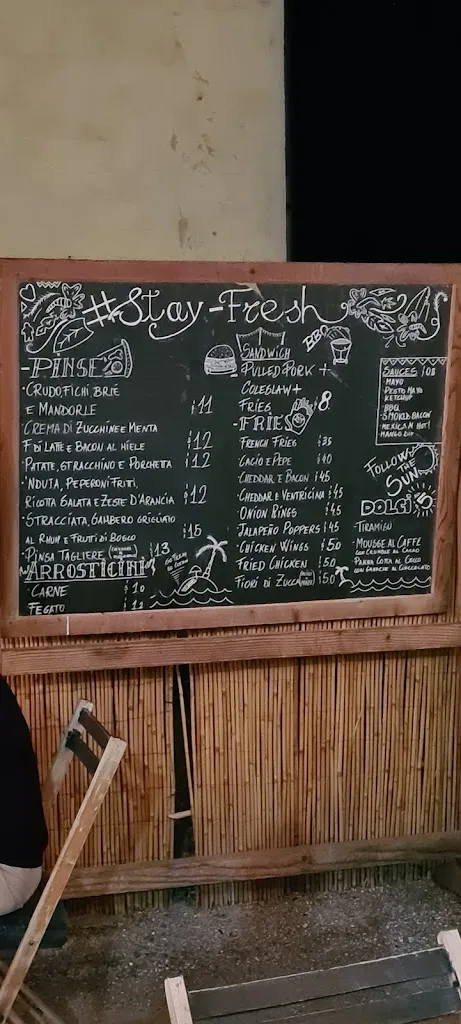 #Stay-Fresh
-PINSE
·CRUDO FICHI BRIE
E MANDORLE ¡11
CREMA DI ZUCCHINE E MENTA
F.DI LATTE E BACON AL MIELE ¡12
·PATATE, STRACCHINO E PORCHETTA ¡12
·'NDUTA, PEPERONI FRITTI,
RICOTTA SALATA E ZESTE D'ARANCIA ¡12
·STRACCIATA, GAMBERO GRIGLIATO
AL RHUM E FRUTTI DI BOSCO ¡15
·PINSA TAGLIERE ¡13
ARROSTICINI
·CARNE ¡10
FEGATO
SANDWICH
BBQ
PULLED PORK +
COLESLAW+
FRIES ¡8
-FRIES
FRENCH FRIES ¡35
CACIO E PEPE ¡40
CHEDDAR E BACON ¡45
·CHEDDAR E VENTRICINA ¡45
ONION RINGS ¡45
JALAPEÑO POPPERS ¡45
·CHICKEN WINGS ¡50
FRIED CHICKEN ¡50
FIORI DI ZUCCA ¡50
SAUCES ¡08
·MAYO
·PESTO MAYO
KETCHUP
·BBQ
·SMOKED BACON
·MEXICAN HOT!
·MANGO
FOLLOW
THE
SUN
DOLCI ¡5
·TIRAMISU
·MOUSSE AL CAFFE
CON CRUMBLE AL CACAO
·PANNA COTTA AL COCCO
CON GANACHE AL CIOCCOLATO